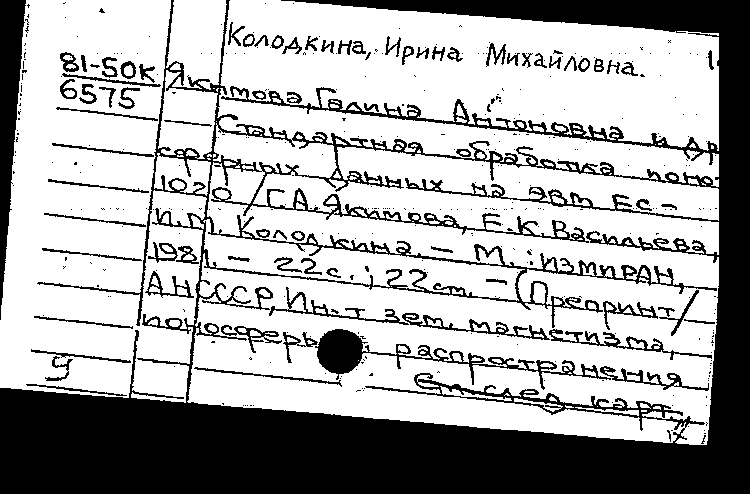 Колодкина, Ирина Михайловна.
81-50К
6575
Якимова, Галина Антоновна и др
Стандартная обработка ионо-
сферных данных на ЭВМ ЕС-
1020 / Г.А. Якимова, Е.К. Васильева,
И.М. Колодкина. – М. : ИЗМИРАН,
1981. – 22 с. ; 22 см. – (Препринт /
АН СССР, Ин-т зем. магнетизма,
ионосферы распространения
См след. карт.
9